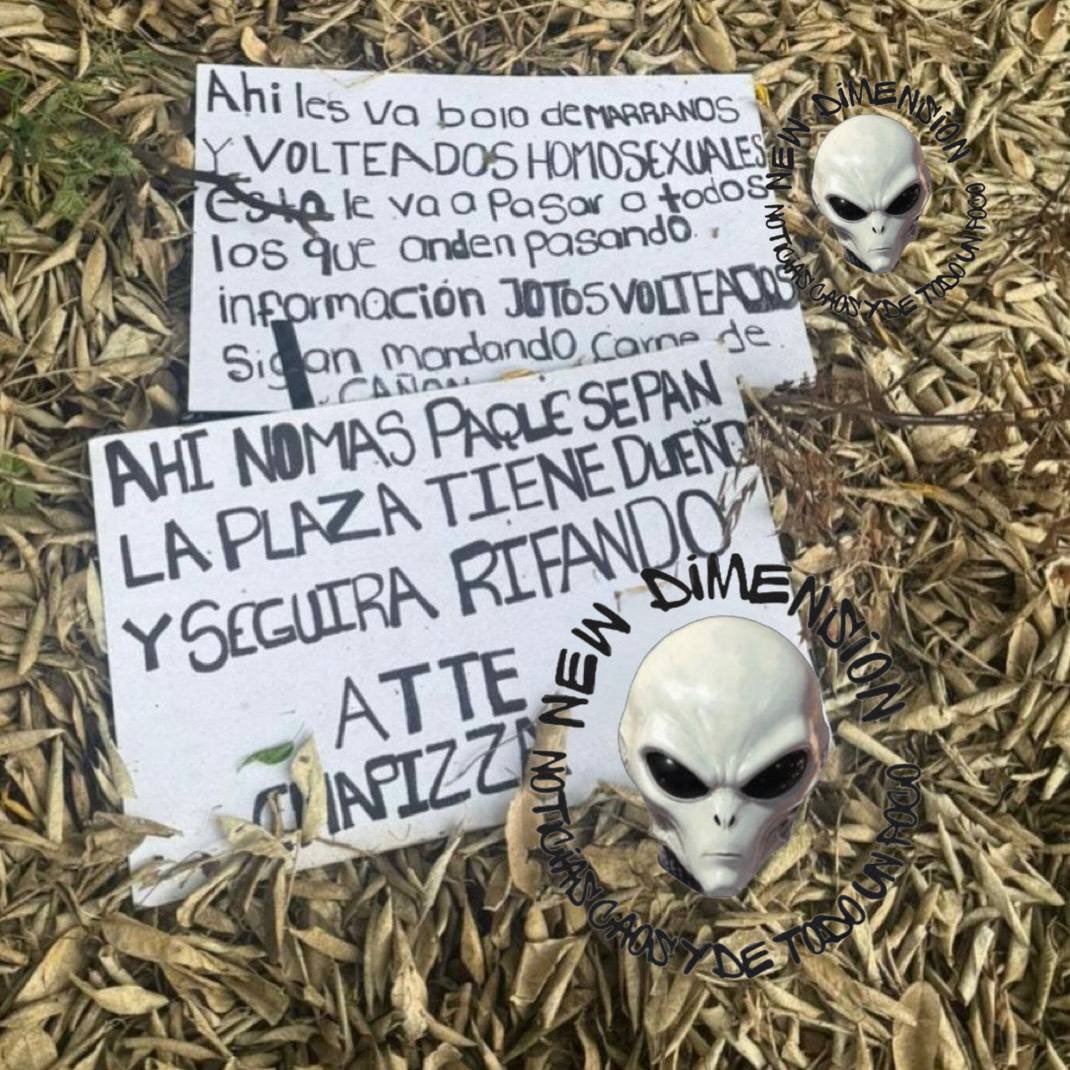 Ahi les va bola de MARRANOS
Y VOLTEADOS HOMOSEXUALES
esto le va a Pasar a todos
los que anden pasando.
información JOTOS VOLTEADOS
Sigan mandando Carne de.
CAÑON
AHI NOMAS PAQUE SEPAN
LA PLAZA TIENE DUEÑO
Y SEGUIRA RIFANDO
ATTE
CHAPIZZA
NEW DiMENSiON
NOTiCiAS CAOS Y DE TODO UN POCO
NEW DiMENSiON
NOTiCiAS CAOS Y DE TODO UN POCO